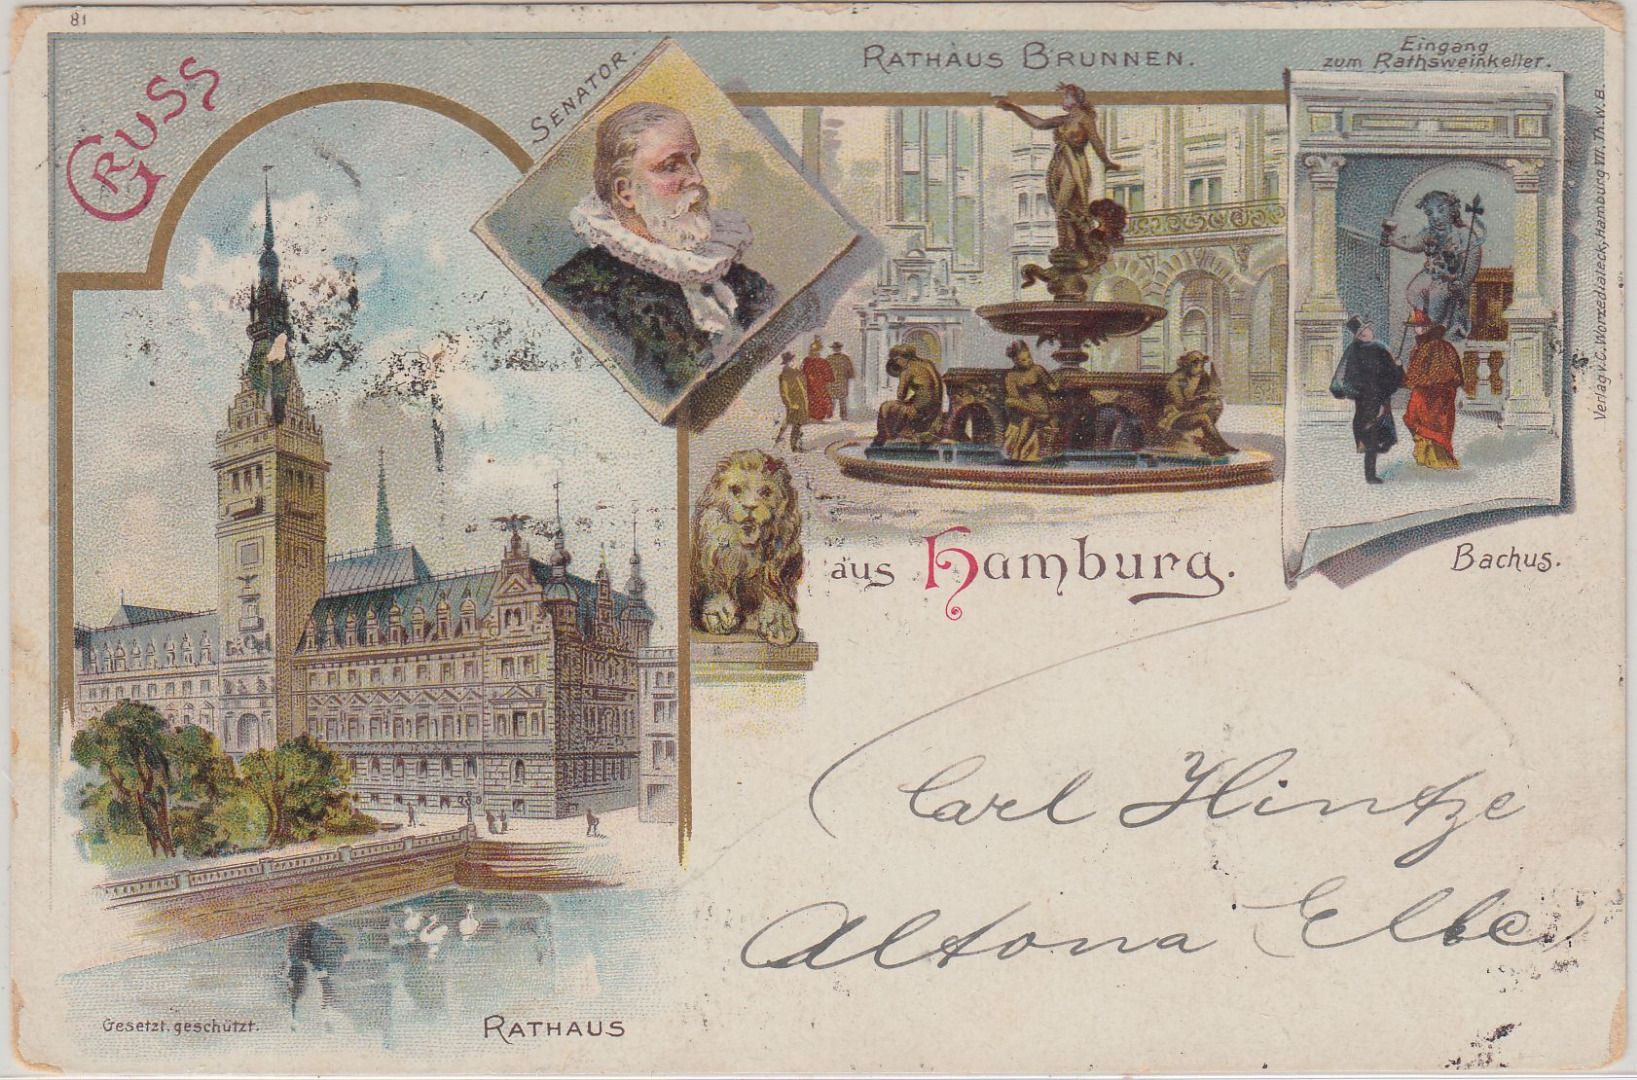 81
GRUSS
SENATOR.
RATHAUS BRUNNEN.
Eingang
zum Rathsweinkeller.
aus Hamburg.
Bachus.
Verlag v. C. Worzedialeck, Hamburg VII. Th. W. B.
Carl Hintze
Altona Elbe
Gesetzt. geschützt.
RATHAUS